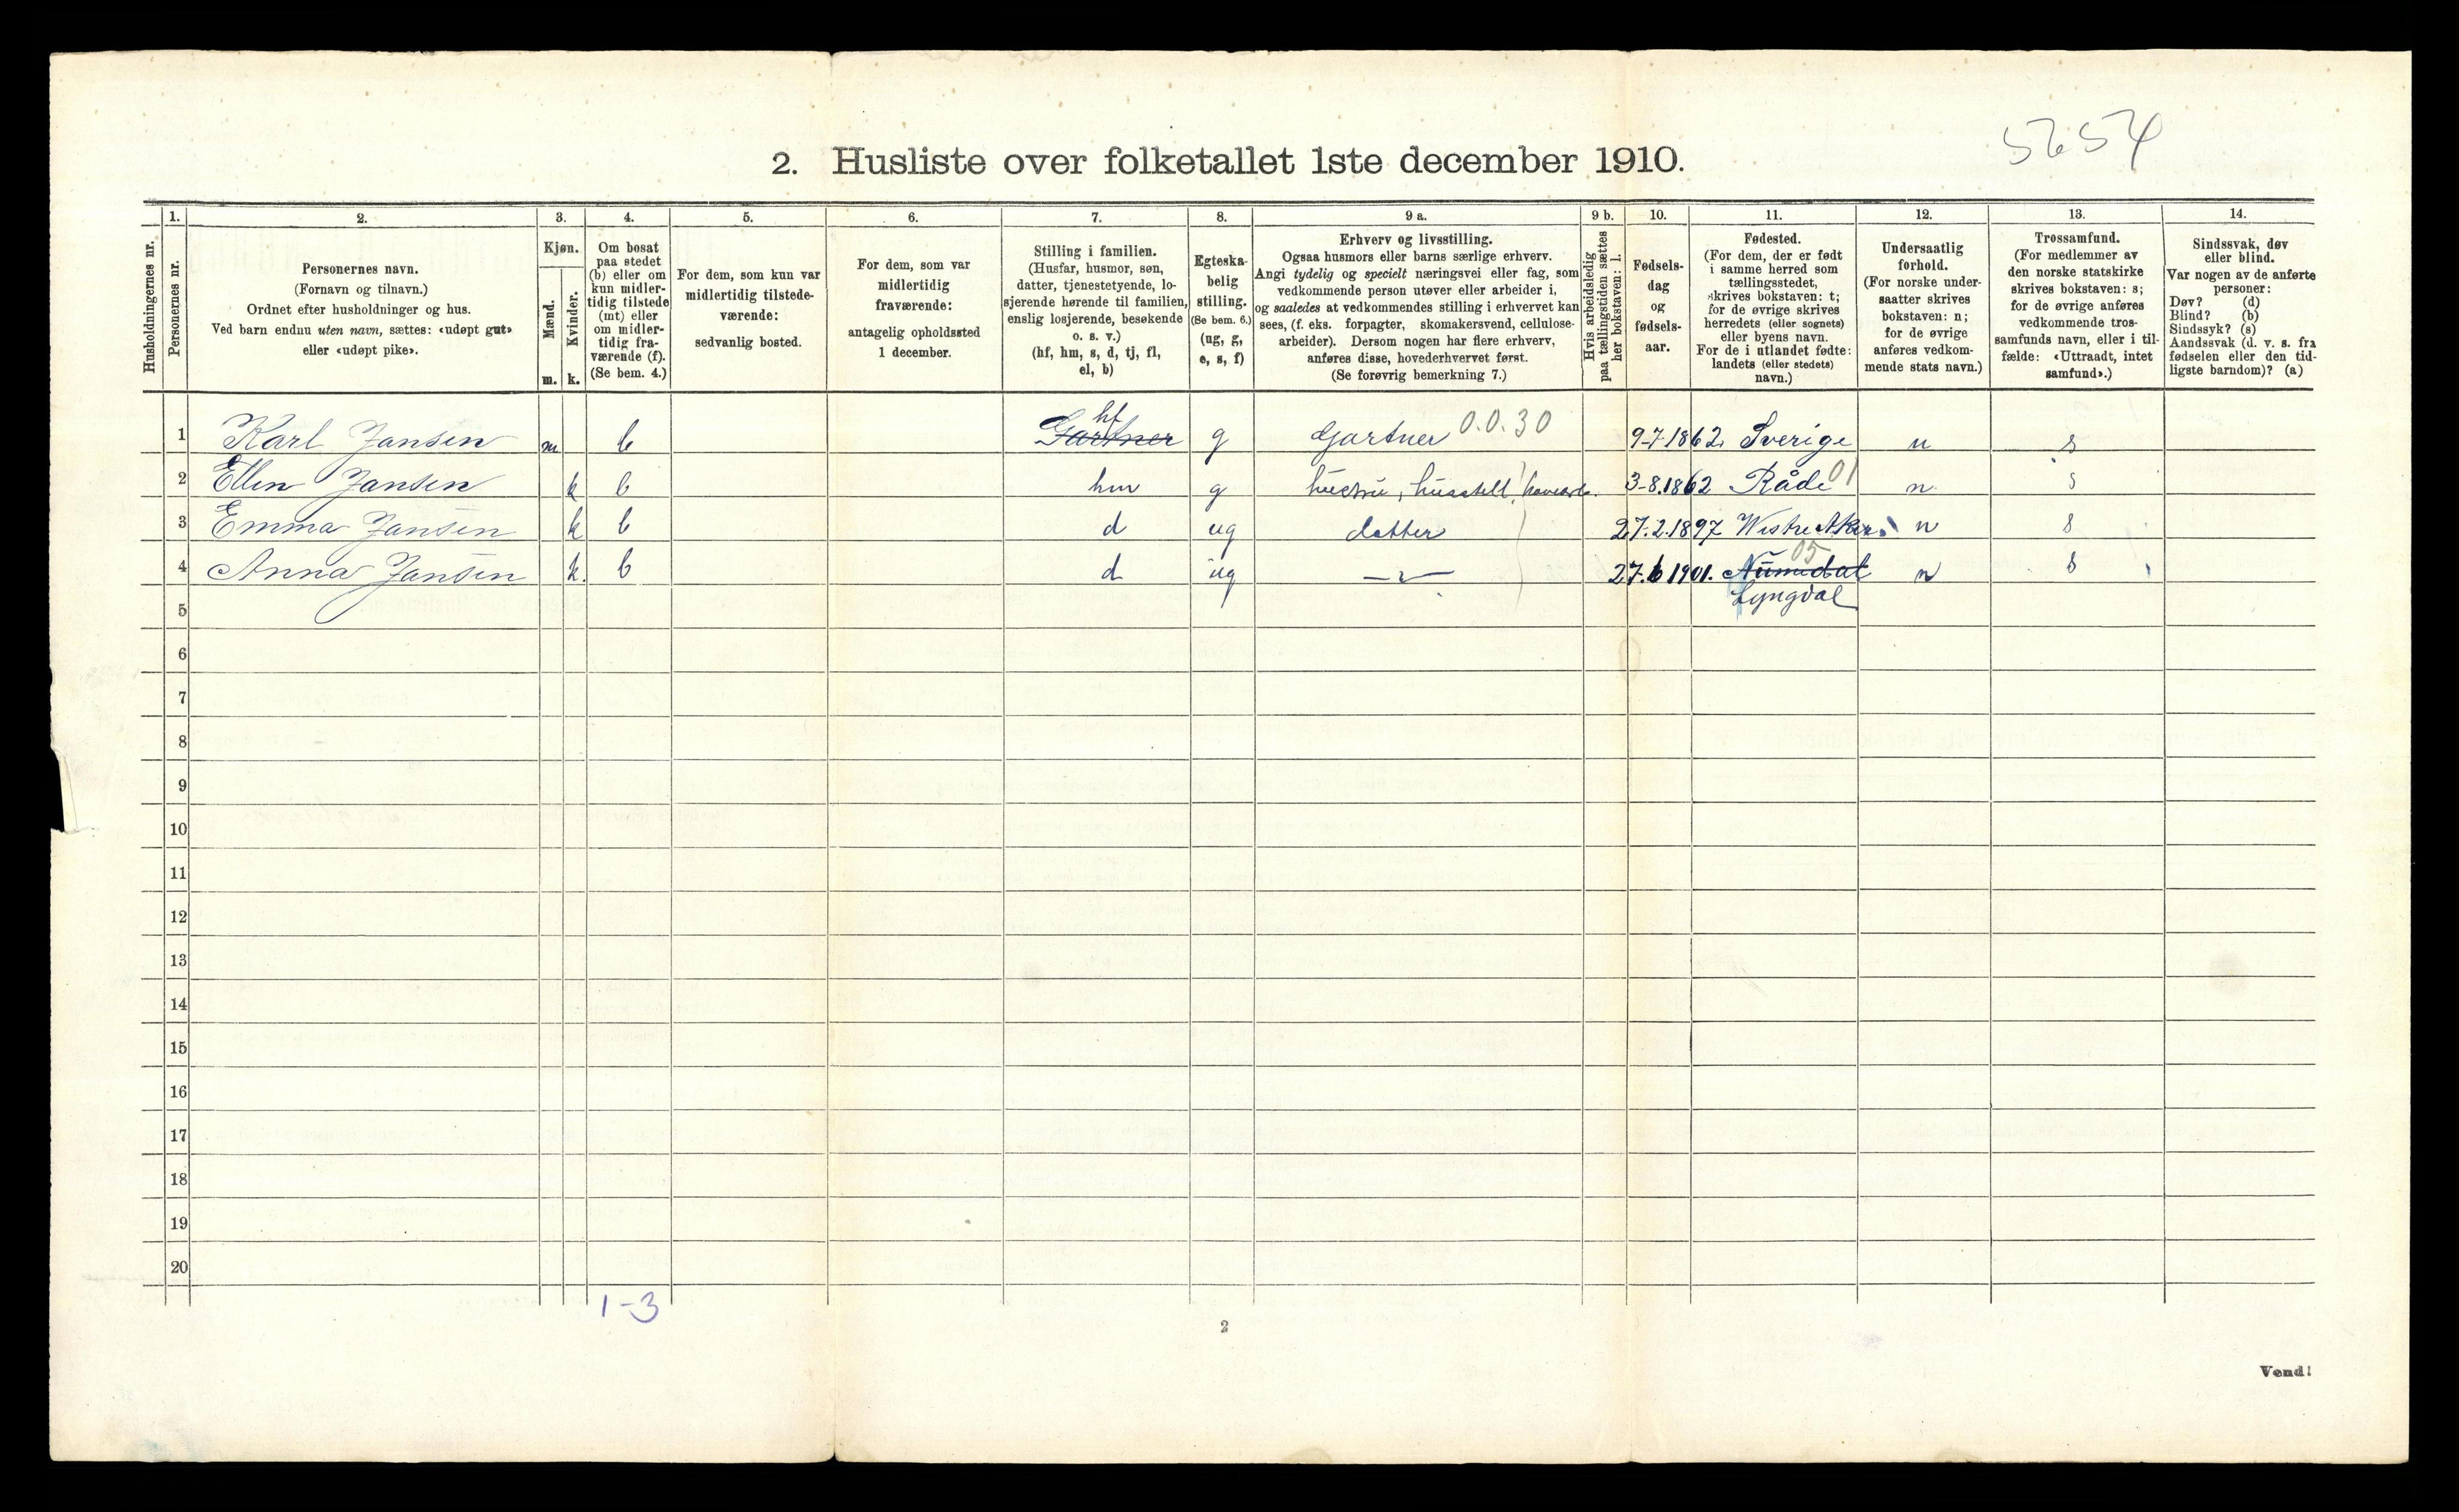 5654
2. Husliste over folketallet 1ste december 1910.
Husholdningernes nr.
1.
Personernes nr.
2.
Personernes navn.
(Fornavn og tilnavn.)
Ordnet efter husholdninger og hus.
Ved barn endnu uten navn, sættes: «udøpt gut»
eller «udøpt pike».
3.
Kjøn.
Mænd.
m.
Kvinder.
k.
4.
Om bosat
paa stedet
(b) eller om
kun midler-
tidig tilstede
(mt) eller
om midler-
tidig fra-
værende (f).
(Se bem. 4.)
5.
For dem, som kun var
midlertidig tilstede-
værende:
sedvanlig bosted.
6.
For dem, som var
midlertidig
fraværende:
antagelig opholdssted
1 december.
7.
Stilling i familien.
(Husfar, husmor, søn,
datter, tjenestetyende, lo-
sjerende hørende til familien,
enslig losjerende, besøkende
o. s. v.)
(hf, hm, s, d, tj, fl,
el, b)
8.
Egteska-
belig
stilling.
(Se bem. 6.)
(ug, g,
e, s, f)
9 a.
Erhverv og livsstilling.
Ogsaa husmors eller barns særlige erhverv.
Angi tydelig og specielt næringsvei eller fag, som
vedkommende person utøver eller arbeider i,
og saaledes at vedkommendes stilling i erhvervet kan
sees, (f. eks. forpagter, skomakersvend, cellulose-
arbeider). Dersom nogen har flere erhverv,
anføres disse, hovederhvervet først.
(Se forøvrig bemerkning 7.)
9 b.
Hvis arbeidsledig
paa tællingstiden sættes
her bokstaven: l.
10.
Fødsels-
dag
og
fødsels-
aar.
11.
Fødested.
(For dem, der er født
i samme herred som
tællingsstedet,
skrives bokstaven: t;
for de øvrige skrives
herredets (eller sognets)
eller byens navn.
For de i utlandet fødte:
landets (eller stedets)
navn.)
12.
Undersaatlig
forhold.
(For norske under-
saatter skrives
bokstaven: n;
for de øvrige
anføres vedkom-
mende stats navn.)
13.
Trossamfund.
(For medlemmer av
den norske statskirke
skrives bokstaven: s;
for de øvrige anføres
vedkommende tros-
samfunds navn, eller i til-
fælde: «Uttraadt, intet
samfund».)
14.
Sindssvak, døv
eller blind.
Var nogen av de anførte
personer:
Døv? (d)
Blind? (b)
Sindssyk? (s)
Aandssvak (d. v. s. fra
fødselen eller den tid-
ligste barndom)? (a)
hf
1 Karl Jansen m b Gartner g Gartner 0.0.30 9-7-1862. Sverige n s
2 Ellen Jansen k b hm g hustru, husstell 3-8.1862 Råde 01 n s
3 Emma Jansen k b d ug datter 27.2.1897 Westre Aker n s
05
4 Anna Jansen k. b d ug 27.6 1901. Numedal n s
5 Lyngdal
6
7
8
9
10
11
12
13
14
15
16
17
18
19
20
1-3
2
Vend!